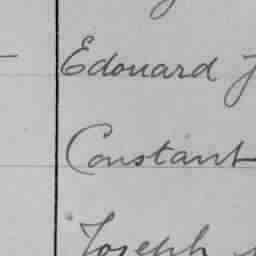 Edouard J
Constant
Joseph